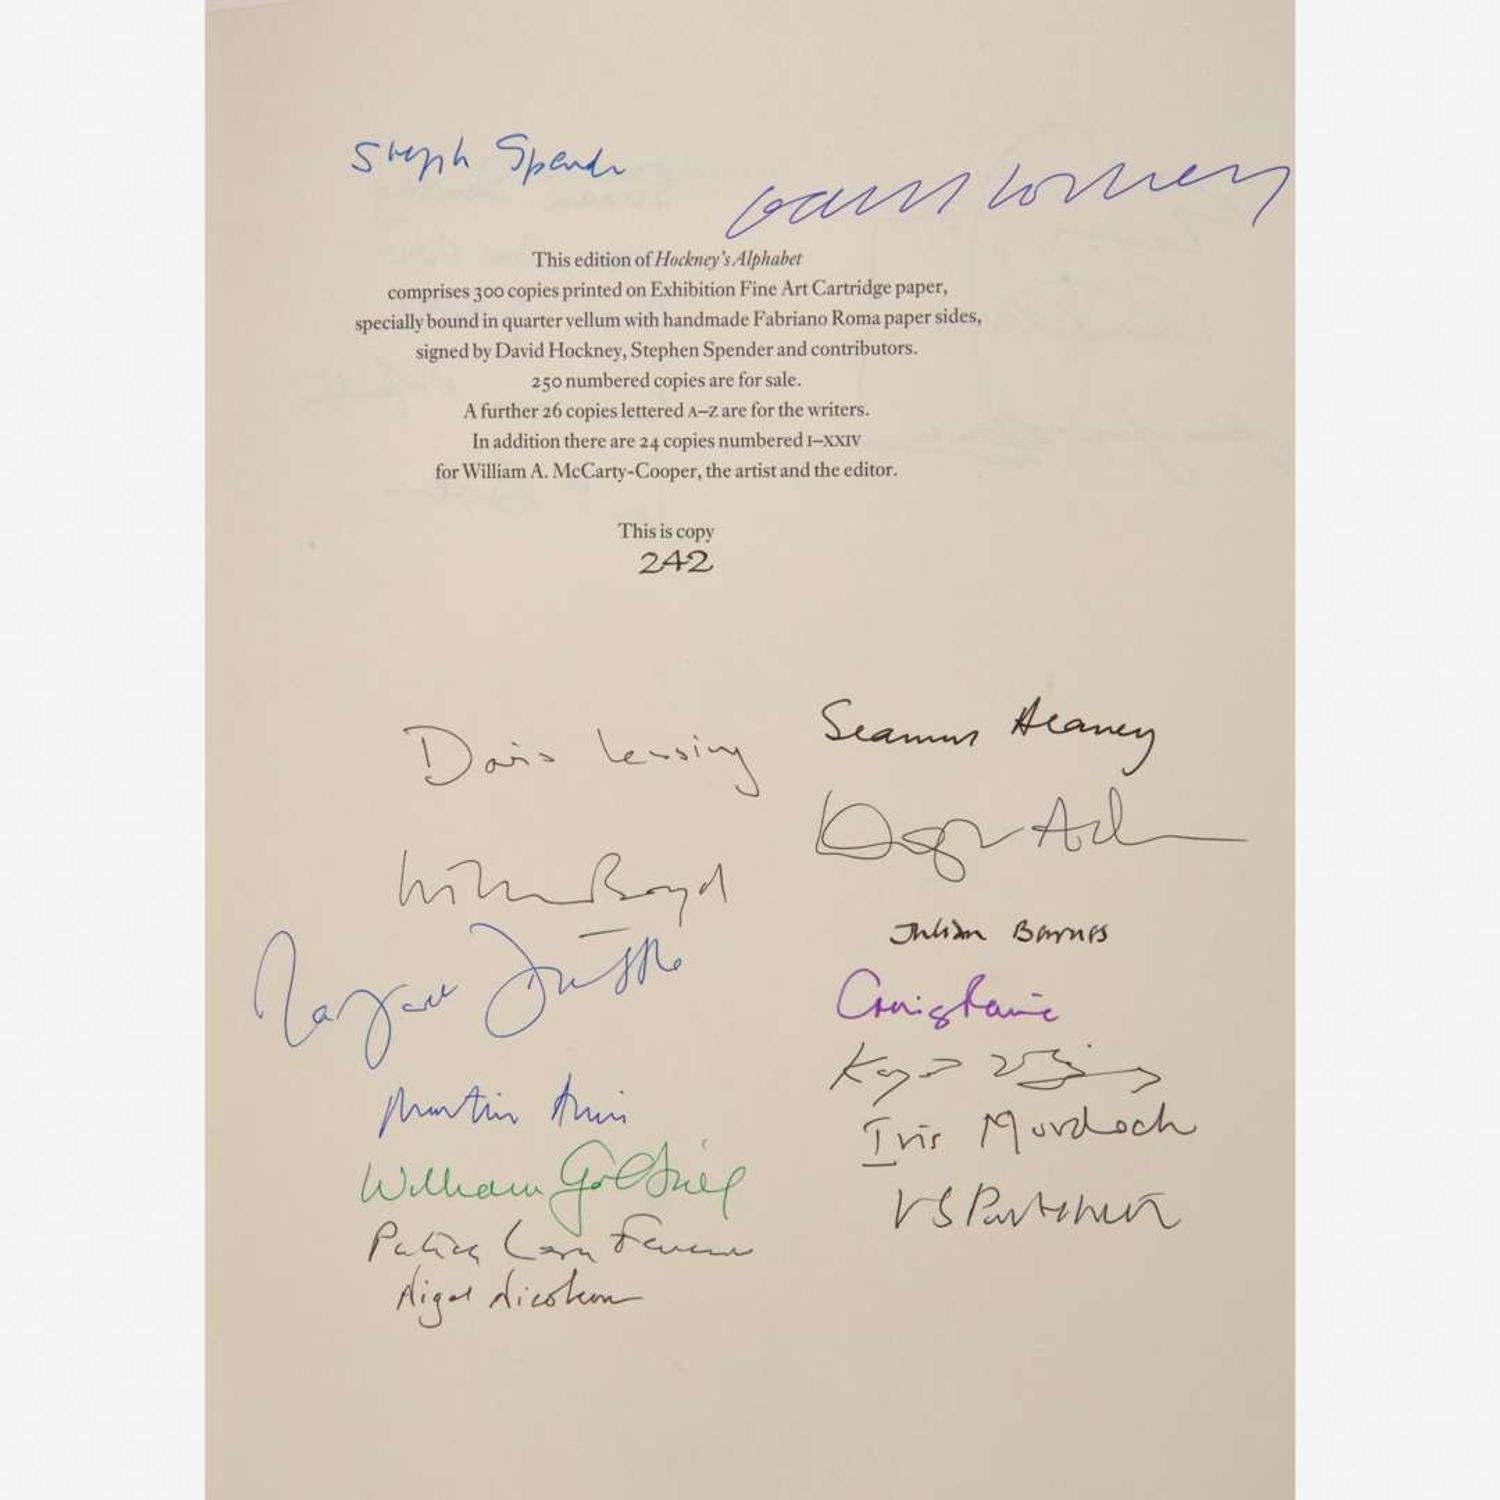 Stephen Spender
David Hockney
This edition of Hockney's Alphabet
comprises 300 copies printed on Exhibition Fine Art Cartridge paper,
specially bound in quarter vellum with handmade Fabriano Roma paper sides,
signed by David Hockney, Stephen Spender and contributors.
250 numbered copies are for sale.
A further 26 copies lettered A–Z are for the writers.
In addition there are 24 copies numbered I–XXIV
for William A. McCarty-Cooper, the artist and the editor.
This is copy
242
Doris Lessing
William Boyd
Margaret Drabble
Martin Amis
William Golding
Patrick Leigh Fermor
Nigel Nicolson
Seamus Heaney
Douglas Adams
Julian Barnes
Craig Raine
Kazuo Ishiguro
Iris Murdoch
VS Pritchett